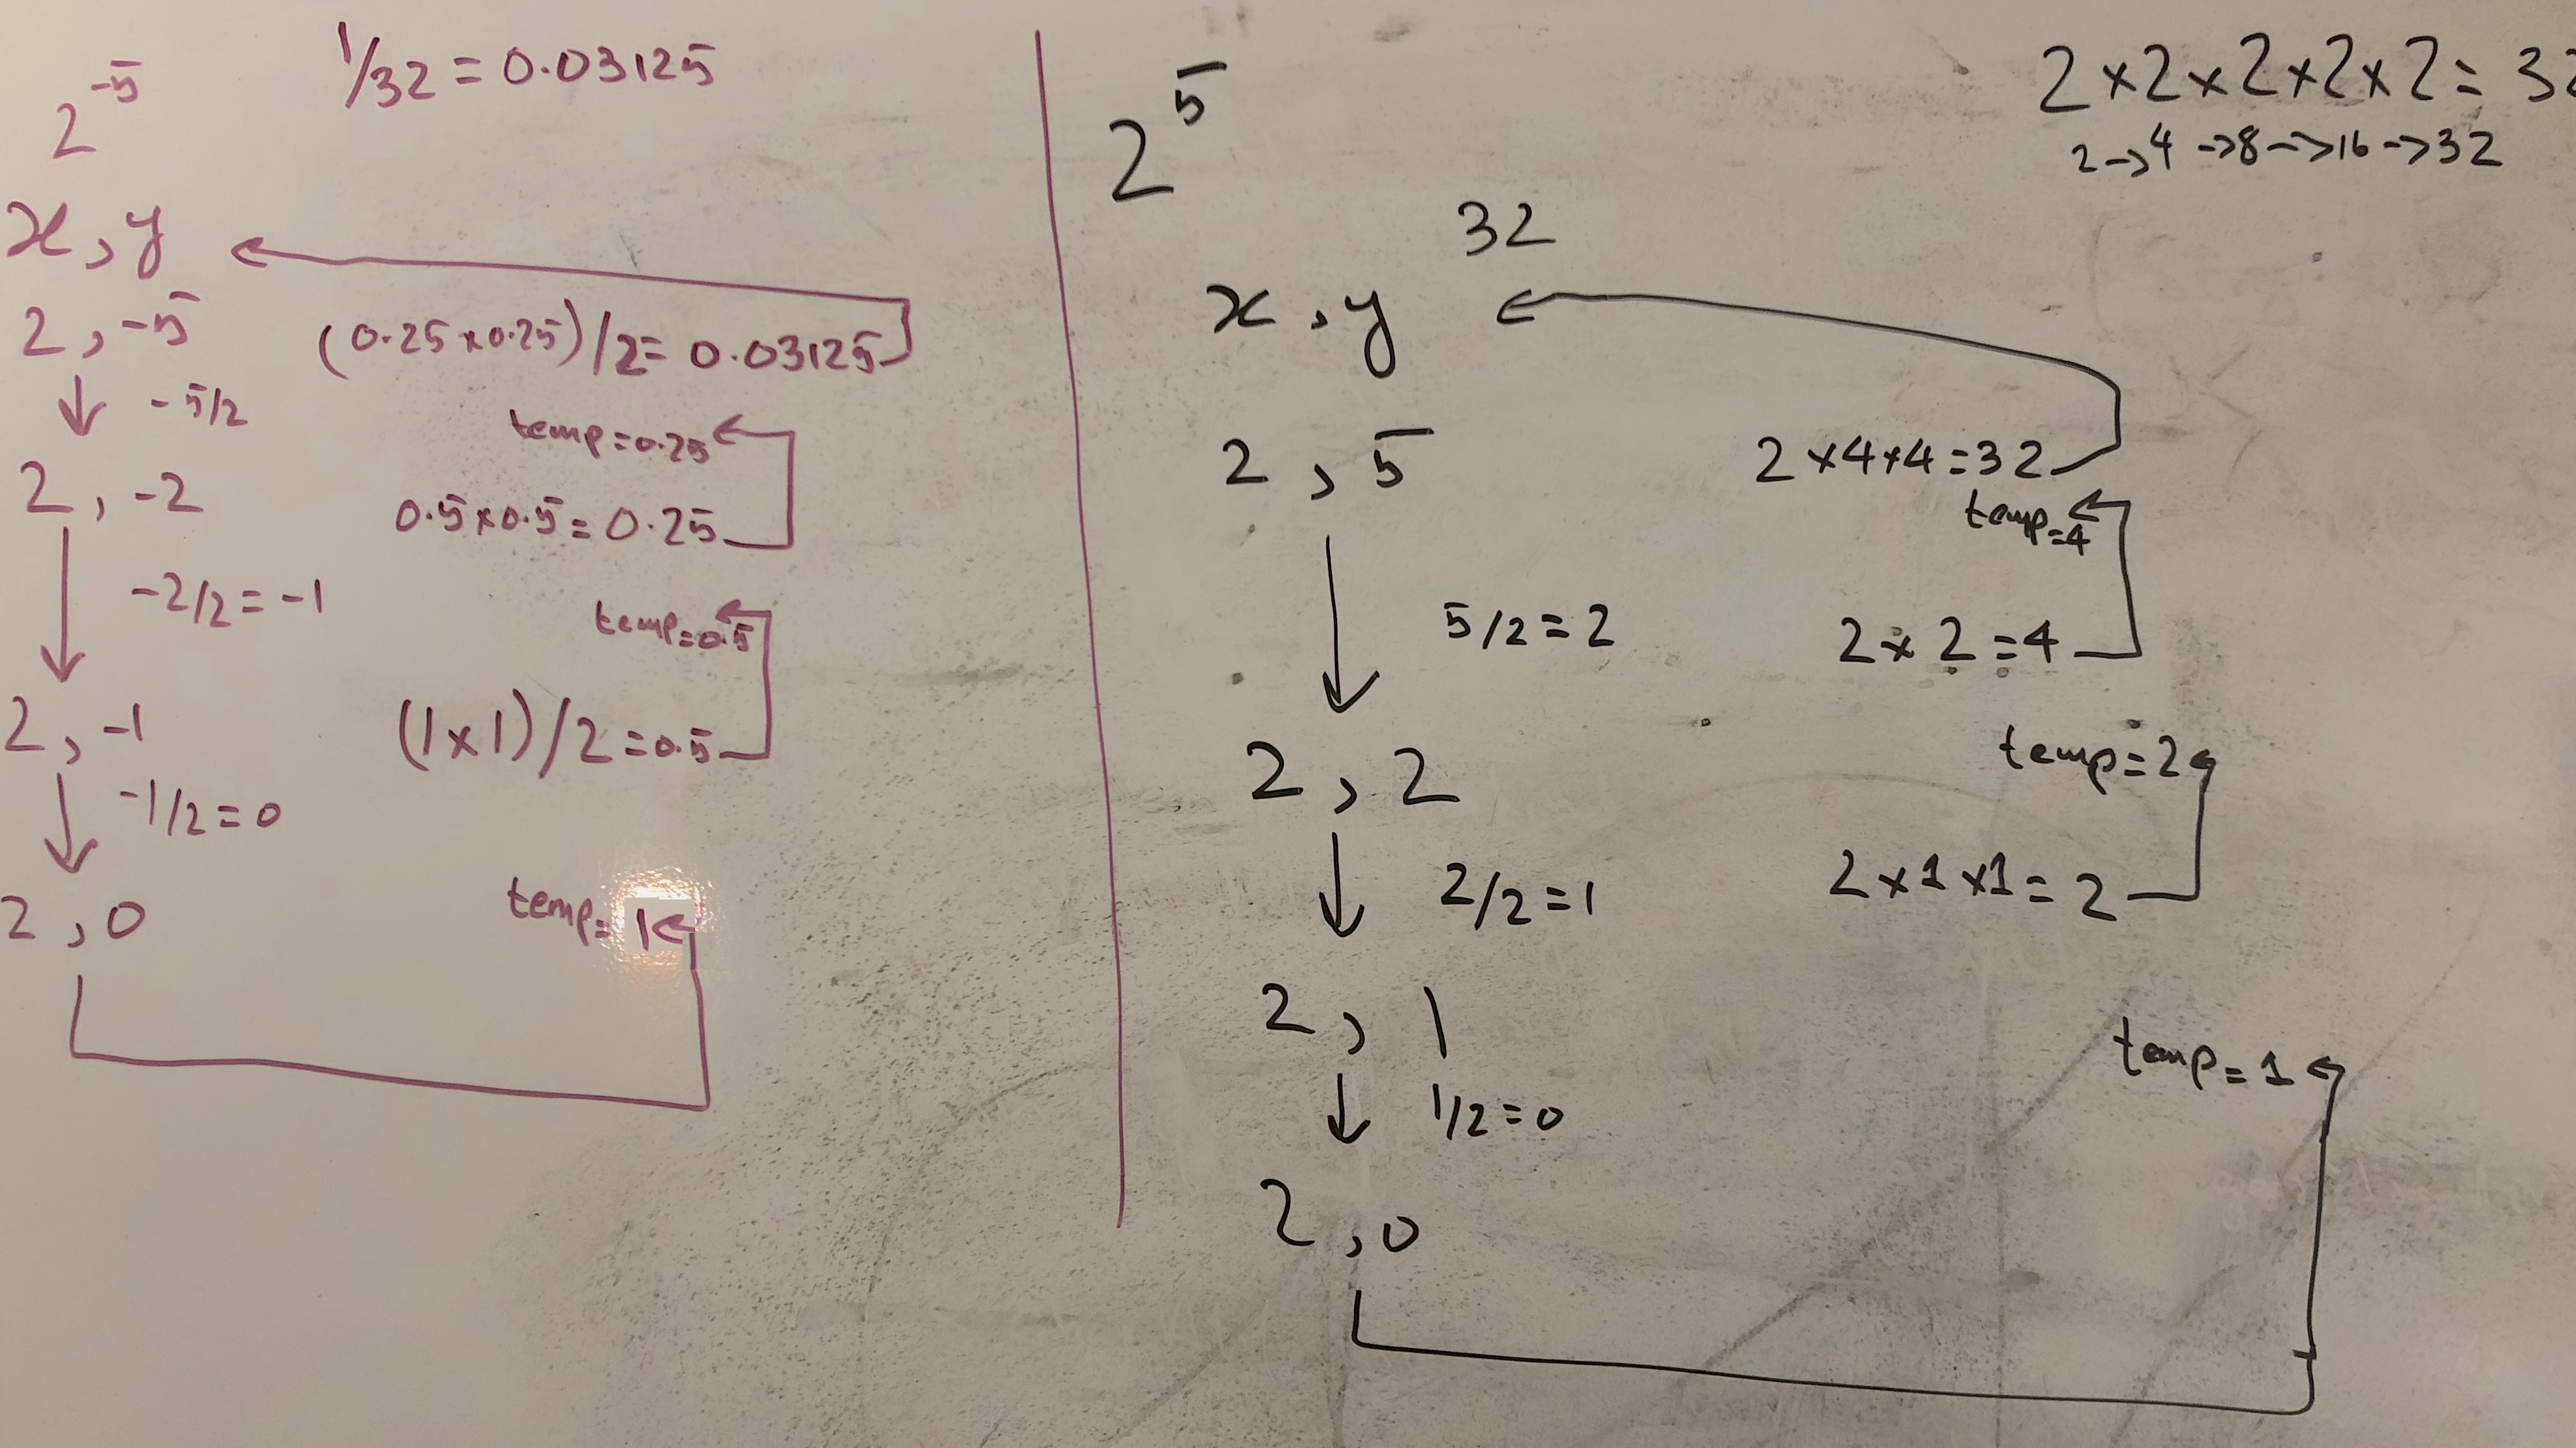 2^-5 1/32 = 0.03125
x, y
2, -5 (0.25×0.25)/2= 0.03125
-5/2
temp=0.25
2, -2 0.5×0.5= 0.25
-2/2= -1
temp=0.5
2, -1 (1×1)/2=0.5
-1/2=0
2, 0 temp= 1
2^5 2×2×2×2×2= 32
2->4->8->16->32
32
x, y
2, 5 2×4×4=32
temp=4
5/2=2 2×2=4
2, 2 temp=2
2/2=1 2×1×1=2
2, 1
temp=1
1/2=0
2, 0